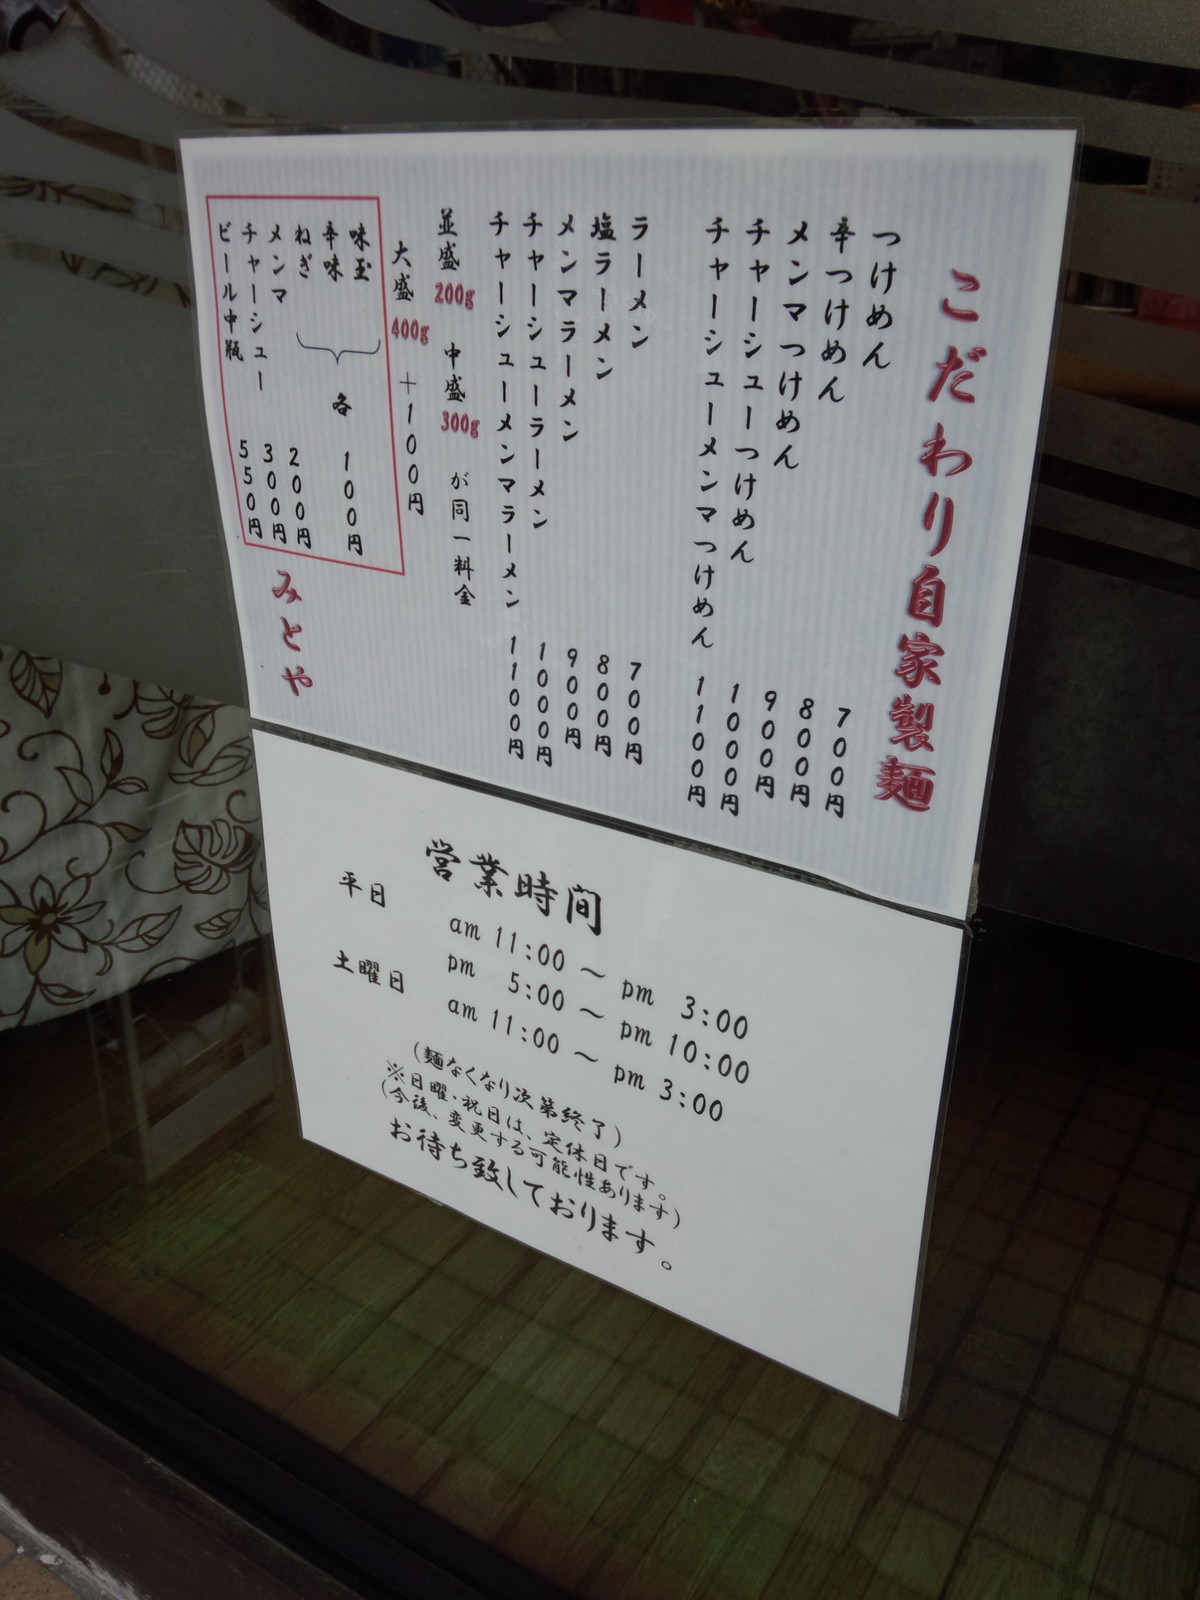 こだわり自家製麺
つけめん 700円
辛つけめん 800円
メンマつけめん 900円
チャーシューつけめん 1000円
チャーシューメンマつけめん 1100円
ラーメン 700円
塩ラーメン 800円
メンマラーメン 900円
チャーシューラーメン 1000円
チャーシューメンマラーメン 1100円
並盛 200g 中盛 300g が同一料金
大盛 400g +100円
味玉
辛味
ねぎ
各 100円
メンマ 200円
チャーシュー 300円
ビール中瓶 550円
みとや
営業時間
平日 am 11:00 ～ pm 3:00
pm 5:00 ～ pm 10:00
土曜日 am 11:00 ～ pm 3:00
(麺なくなり次第終了)
※日曜・祝日は、定休日です。
(今後、変更する可能性あります)
お待ち致しております。